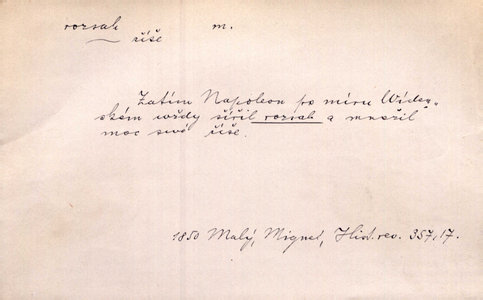 rozsah m.
říše
Zatím Napoleon po míru Wíden„
ském wždy šířil rozsah a množil
moc swé říše.
1850 Malý, Mignet, Hist. rev. 357,17.